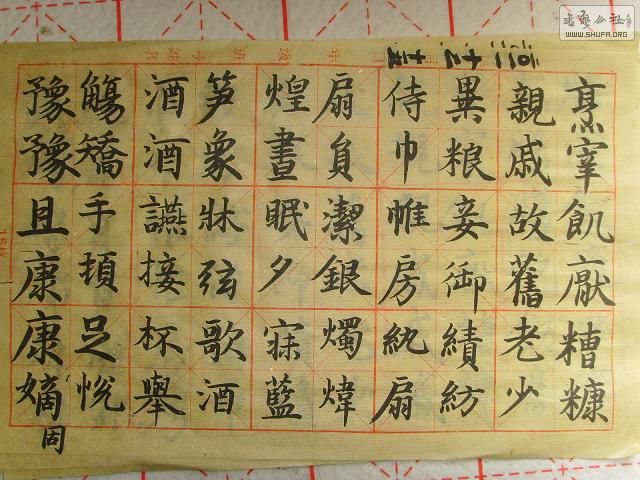 烹宰飢厭糟糠
親戚故舊老少
異粮妾御績紡
侍巾帷房紈扇
扇員潔銀燭煒
煌晝眠夕寐藍
笋象牀弦歌酒
酒酒讌接杯舉
觴矯手頓足悅
豫豫且康康嫡
固
书艺公社
WWW.SHUFA.ORG